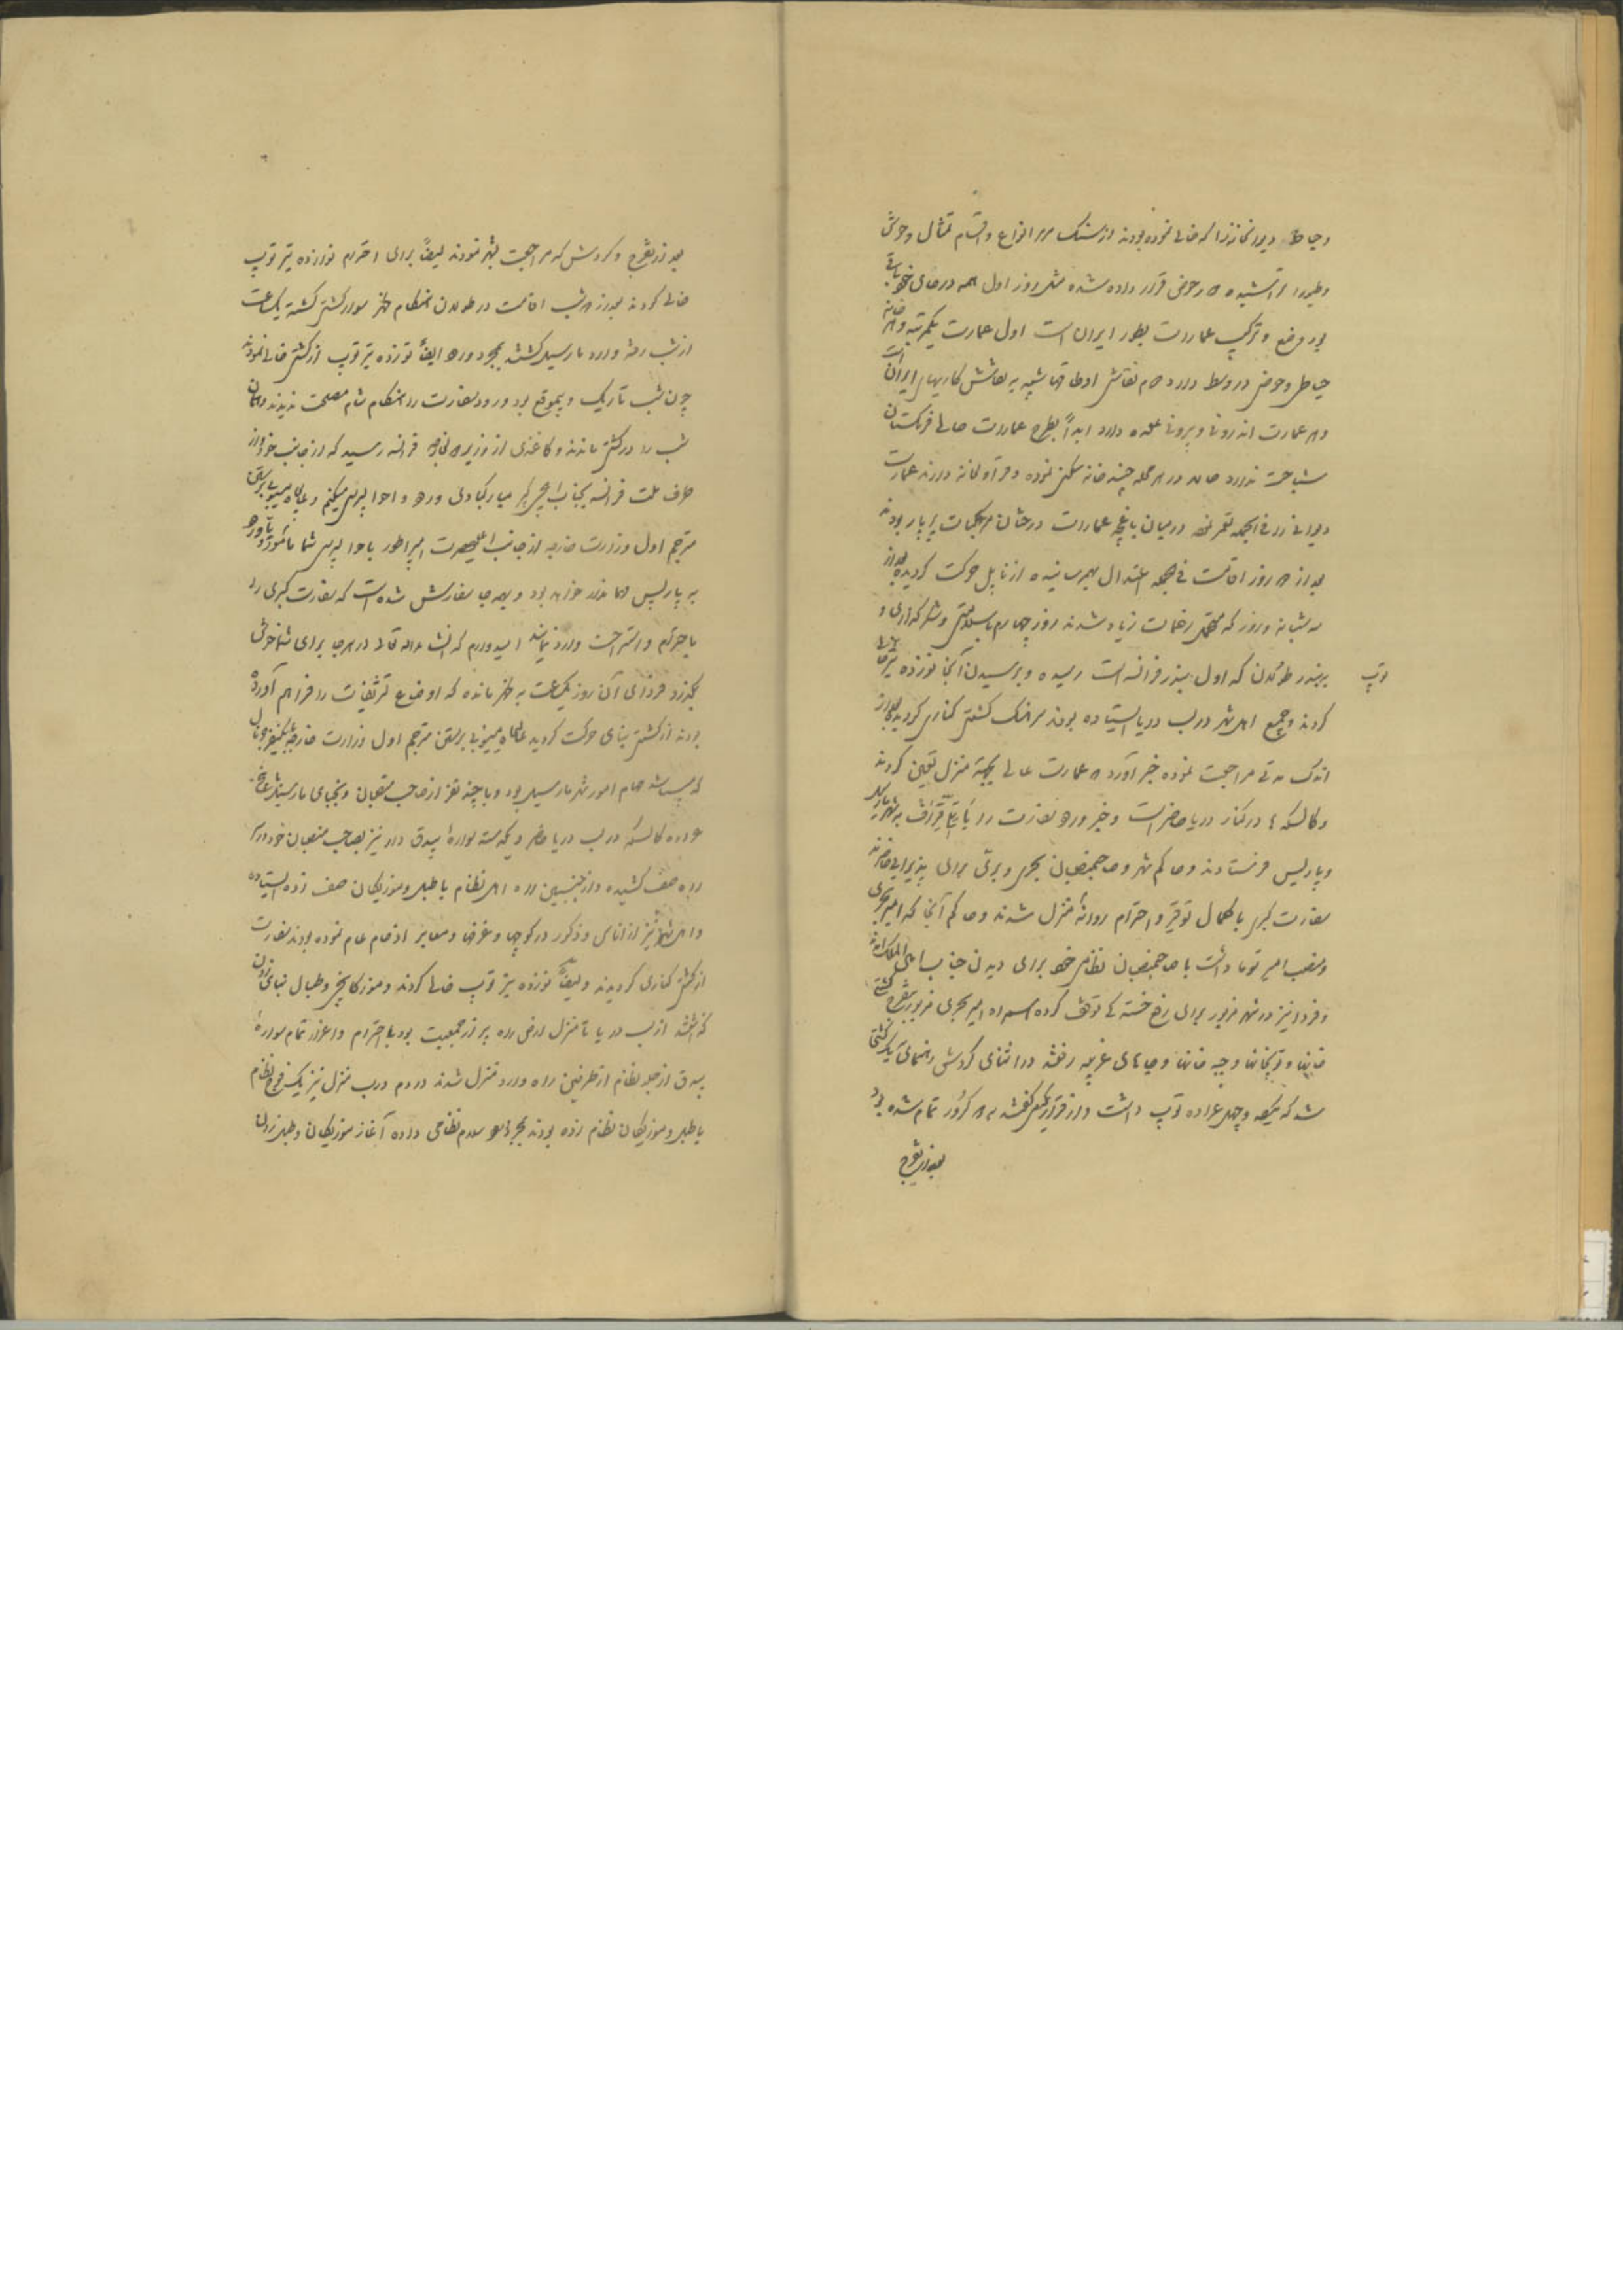 وحیاط دیوانخانه را که خالی نموده بودند از سنک مرمر انواع و اقسام تمثال وحوش
وطیور را تراشیده در حوض قرار داده شده مثل روز اول همه در جای خود باقی
بود وضع و ترکیب عمارات بطور ایران است اول عمارت یکمرتبه و هر خانه
حیاط وحوض در وسط دارد تمام نقاشی اوطاقها شبیه به نقاشی کارهای ایران است
و هر عمارت اندرونی و بیرونی علیحده دارد ابداً بطرح عمارات حالیه فرنکستان
شباهت ندارد حال در هر محله چند خانه سکنی نموده و قراولخانه دارند عمارت
دیوانی را فی الجمله تعمیر نموده در میان باغچه عمارات درختان مرکبات پر بار بودند
بعد از روز اقامت فی الجمله اعتدال بهم رسانیده از ناپل حرکت کردید بعد از
سه شبانه روز که متحمل زحمات زیاد شدند روز چهارم با سلامتی و شکر گذاری
ببندر طولون که اول بندر فرانسه است رسیده و برسیدن آنجا نوزده تیر
توپ
کردند و جمیع اهل شهر در لب دریا ایستاده بودند سرهنک کشتی کناری کردید بعد از
اندک مدتی مراجعت نموده خبر آورد که عمارت عالی بجهة منزل تعیین کردند
و کالسکه ها در کنار دریا حاضر است و خبر ورود سفارت را با تلغراف بشهر مارسیل
و پاریس فرستادند و حاکم شهر و صاحبمنصبان بحری و بری برای پذیرائی حاضرند
سفارت کبری با کمال توقیر و احترام روانه منزل شدند و حاکم آنجا که امیر بحری
ومنصب امیر تومانی داشت با صاحبمنصبان نظامی خود برای دیدن جناب امین الملک آمدند
و فردا نیز در شهر مزبور برای رفع خستگی توقف کرده همراه امیر بحری مزبور بتفرج کشتی
خانها و توپخانها و جبه خانها و جاهای غریبه رفتند در اثنای کردش راهنمای یک کشتی
شد که یکصد و چهل عراده توپ داشت و از قراریکه میکفتند به کرور تمام شده بود
بعد از تفرج
بعد از تفرج و کردش که مراجعت بشهر نمودند ایضاً برای احترام نوزده تیر توپ
خالی کردند بعد از شب اقامت در طولون هنکام ظهر سوار کشتی کشته یکساعت
از شب رفته وارد مارسیل کشتند بمجرد ورود ایضاً نوزده تیر توپ از کشتی خالی نمودند
چون شب تاریک و بیموقع بود ورود سفارت را هنکام شام مصلحت ندیدند و همان
شب را در کشتی ماندند و کاغذی از وزیر خارجه فرانسه رسید که از جانب خود و از
طرف ملت فرانسه بجناب ایلچی کبیر مبارکبادی ورود و احوالپرسی میکنم و عالیجاه مسیو
مترجم اول وزارت خارجه از جانب اعلیحضرت امپراطور باحوالپرسی شما مأمور
به پاریس مهماندار خواهد بود و بهمه جا سفارش شده است که سفارت کبری را
با احترام و استراحت وارد نمایند امیدوارم که انشاءالله تعالی در همه جا برای شما خوش
بگذرد فردای آن روز یکساعت به ظهر مانده که اوضاع تشریفات را فراهم آورده
بودند از کشتی بنای حرکت کردید عالیجاه مسیو مترجم اول وزارت خارجه
که مباشر تمام امور شهر مارسیل بود و با چند نفر از صاحب منصبان و نجبای مارسیل
عراده کالسکه در لب دریا حاضر و یکدسته سواره بیدق دار نیز بصاحب منصبان خود در
راه صف کشیده و از جنبین راه اهل نظام با طبل و موزیکان صف زده ایستاده
و اهل شهر نیز از اناث و ذکور در کوچها و غرفها و معابر ازدحام عام نموده بودند سفارت
از کشتی کناری کردیدند و ایضاً نوزده تیر توپ خالی کردند و موزیکانچی و طبال بنای زدن
کذاشتند از لب دریا تا منزل ارض راه پر از جمعیت بود با احترام و اعزاز تمام سواره
بیدق از جلو نظام از طرفین راه وارد منزل شدند در دم درب منزل نیز یک فوج نظام
با طبل و موزیکان نظام زده بودند بمجرد ورود سلام نظامی داده آغاز موزیکان و طبل زدن